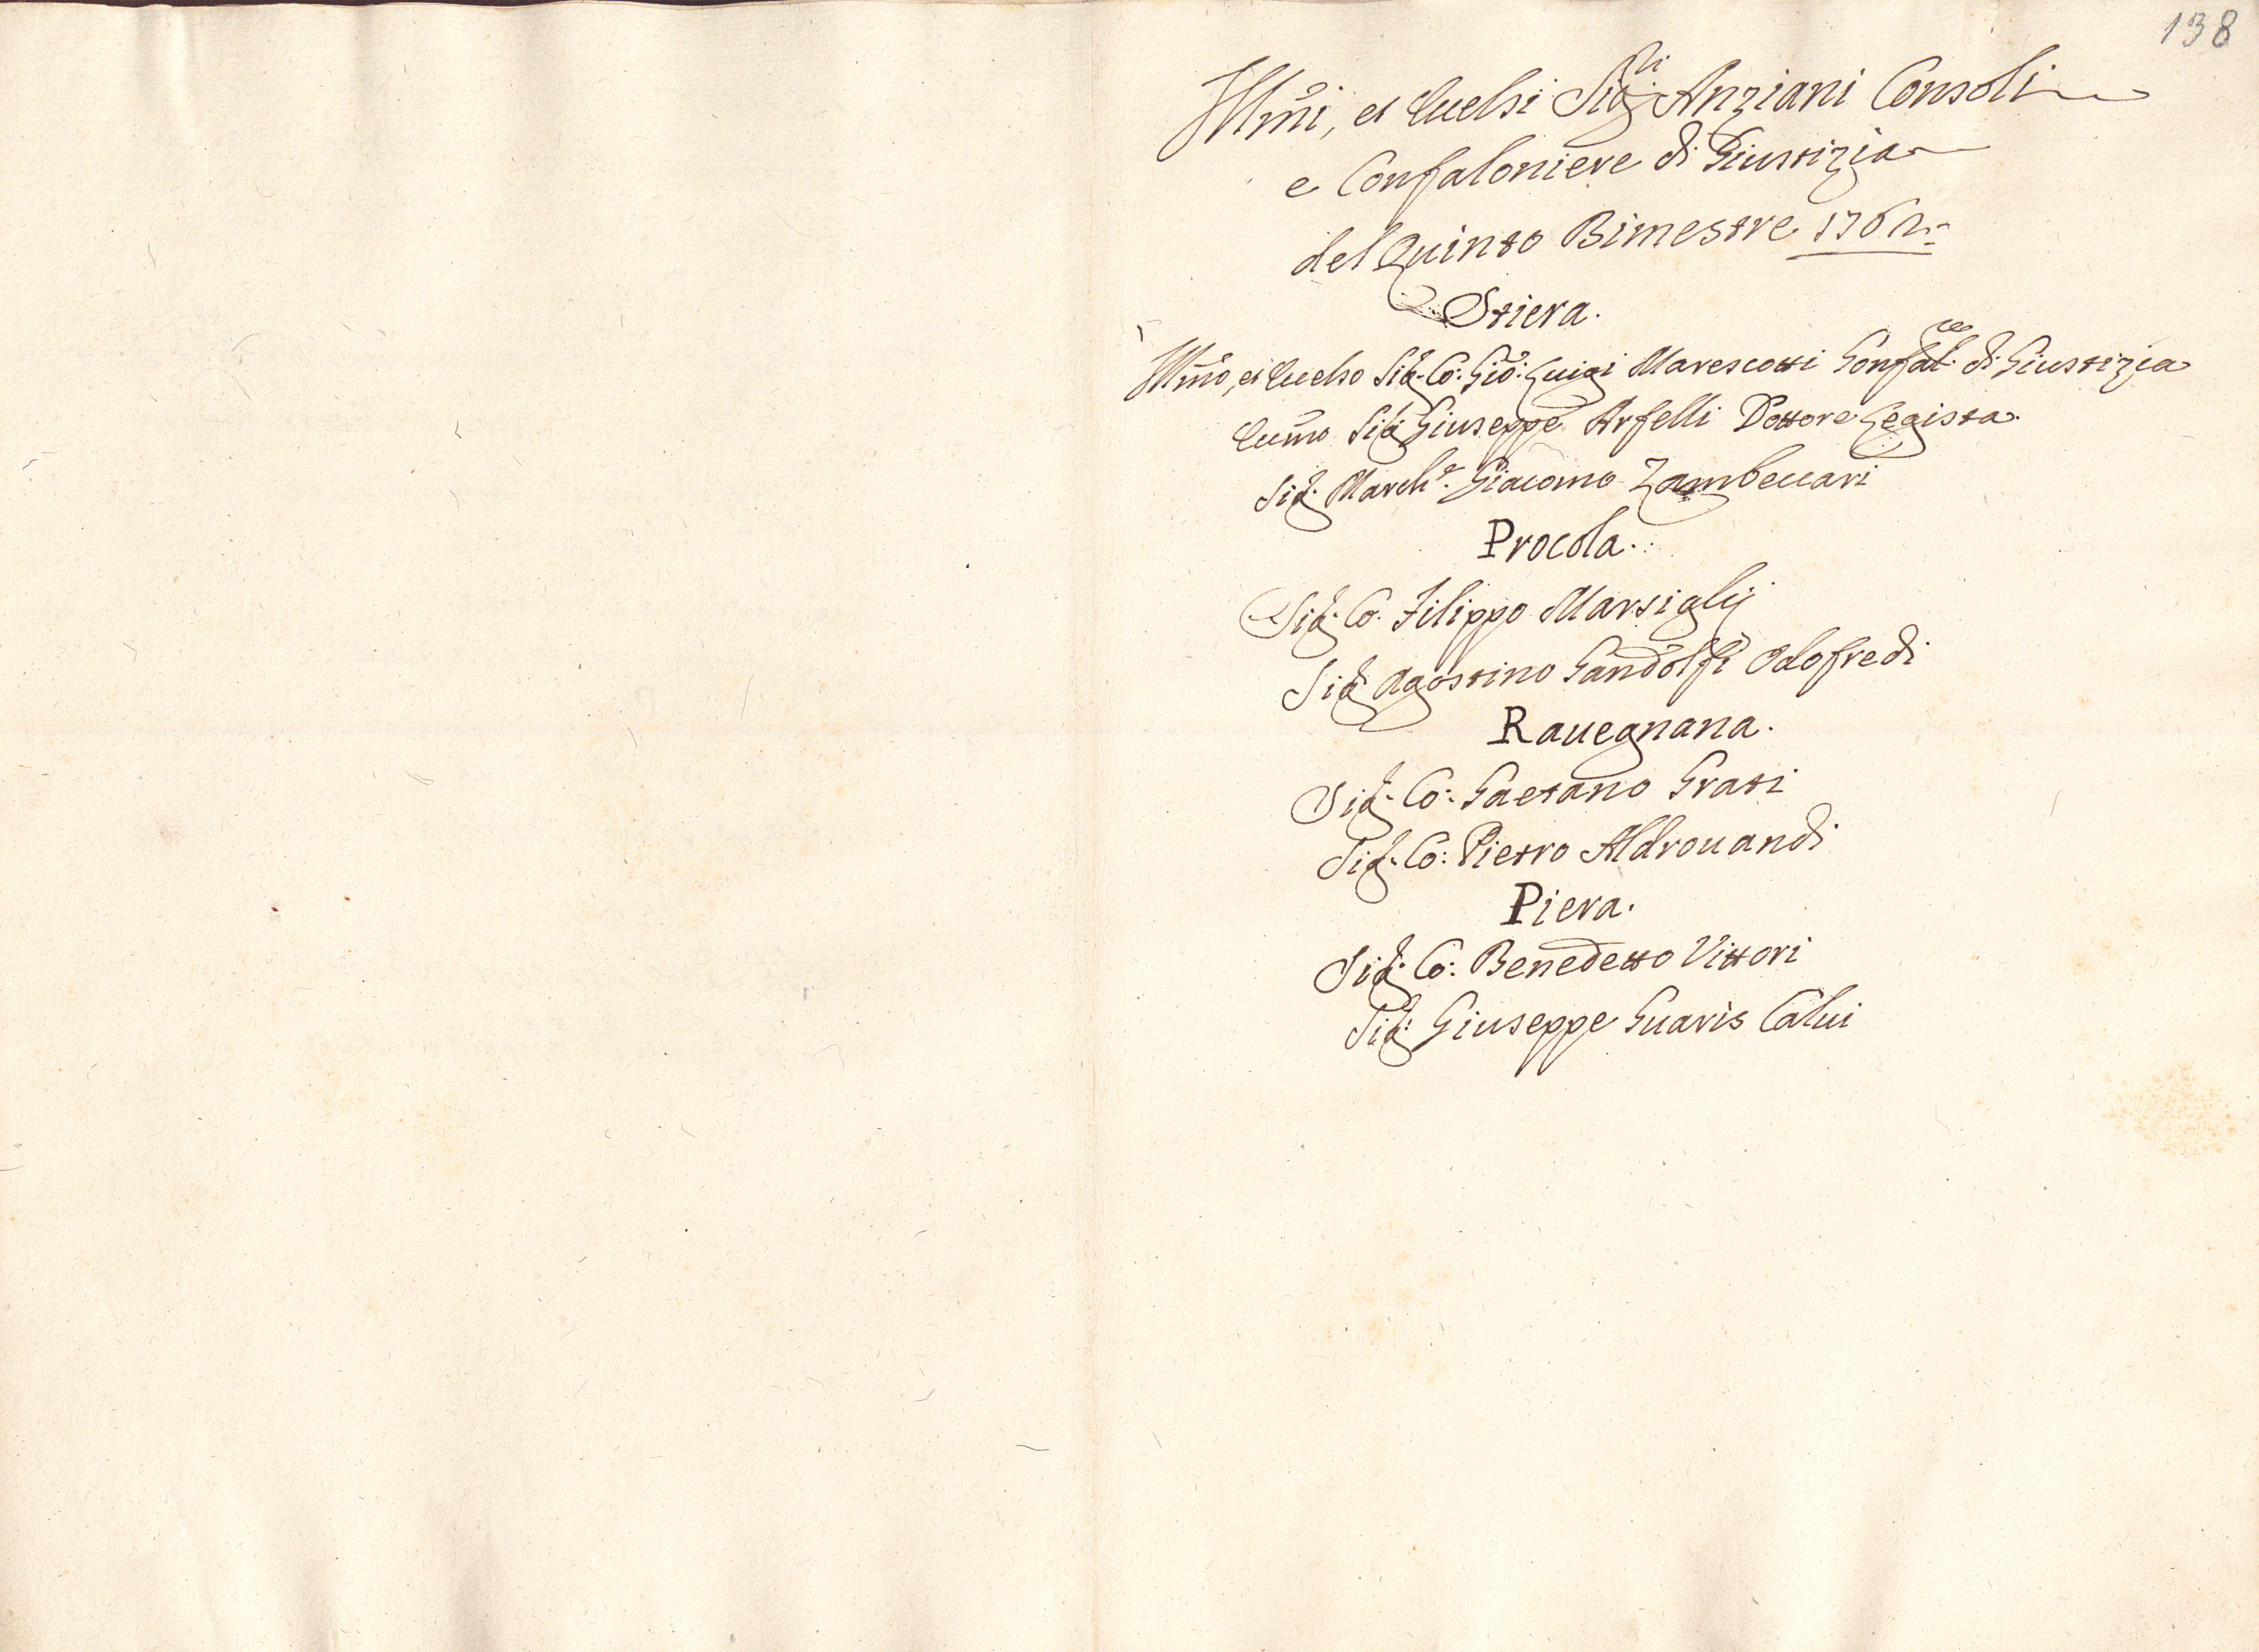 138
Illmi, et Eccelsi Sigri Anziani Consoli
e Confaloniere di Giustizia
del Quinto Bimestre 1762
Stiera.
Illmo, et Eccelso Sigr. Co: Gio: Luigi Marescotti Gonfalre di Giustizia
Eccmo Sigr Giuseppe Arfelli Dottore Legista.
Sigr. Marche. Giacomo Zambeccari
Procola.
Sigr. Co. Filippo Marsiglij
Sigr Agostino Gandolfi Odofredi
Rauegnana.
Sigr. Co: Gaetano Grati
Sigr. Co: Pietro Aldrouandi
Piera.
Sigr. Co: Benedetto Vittori
Sigr: Giuseppe Guaris Calui